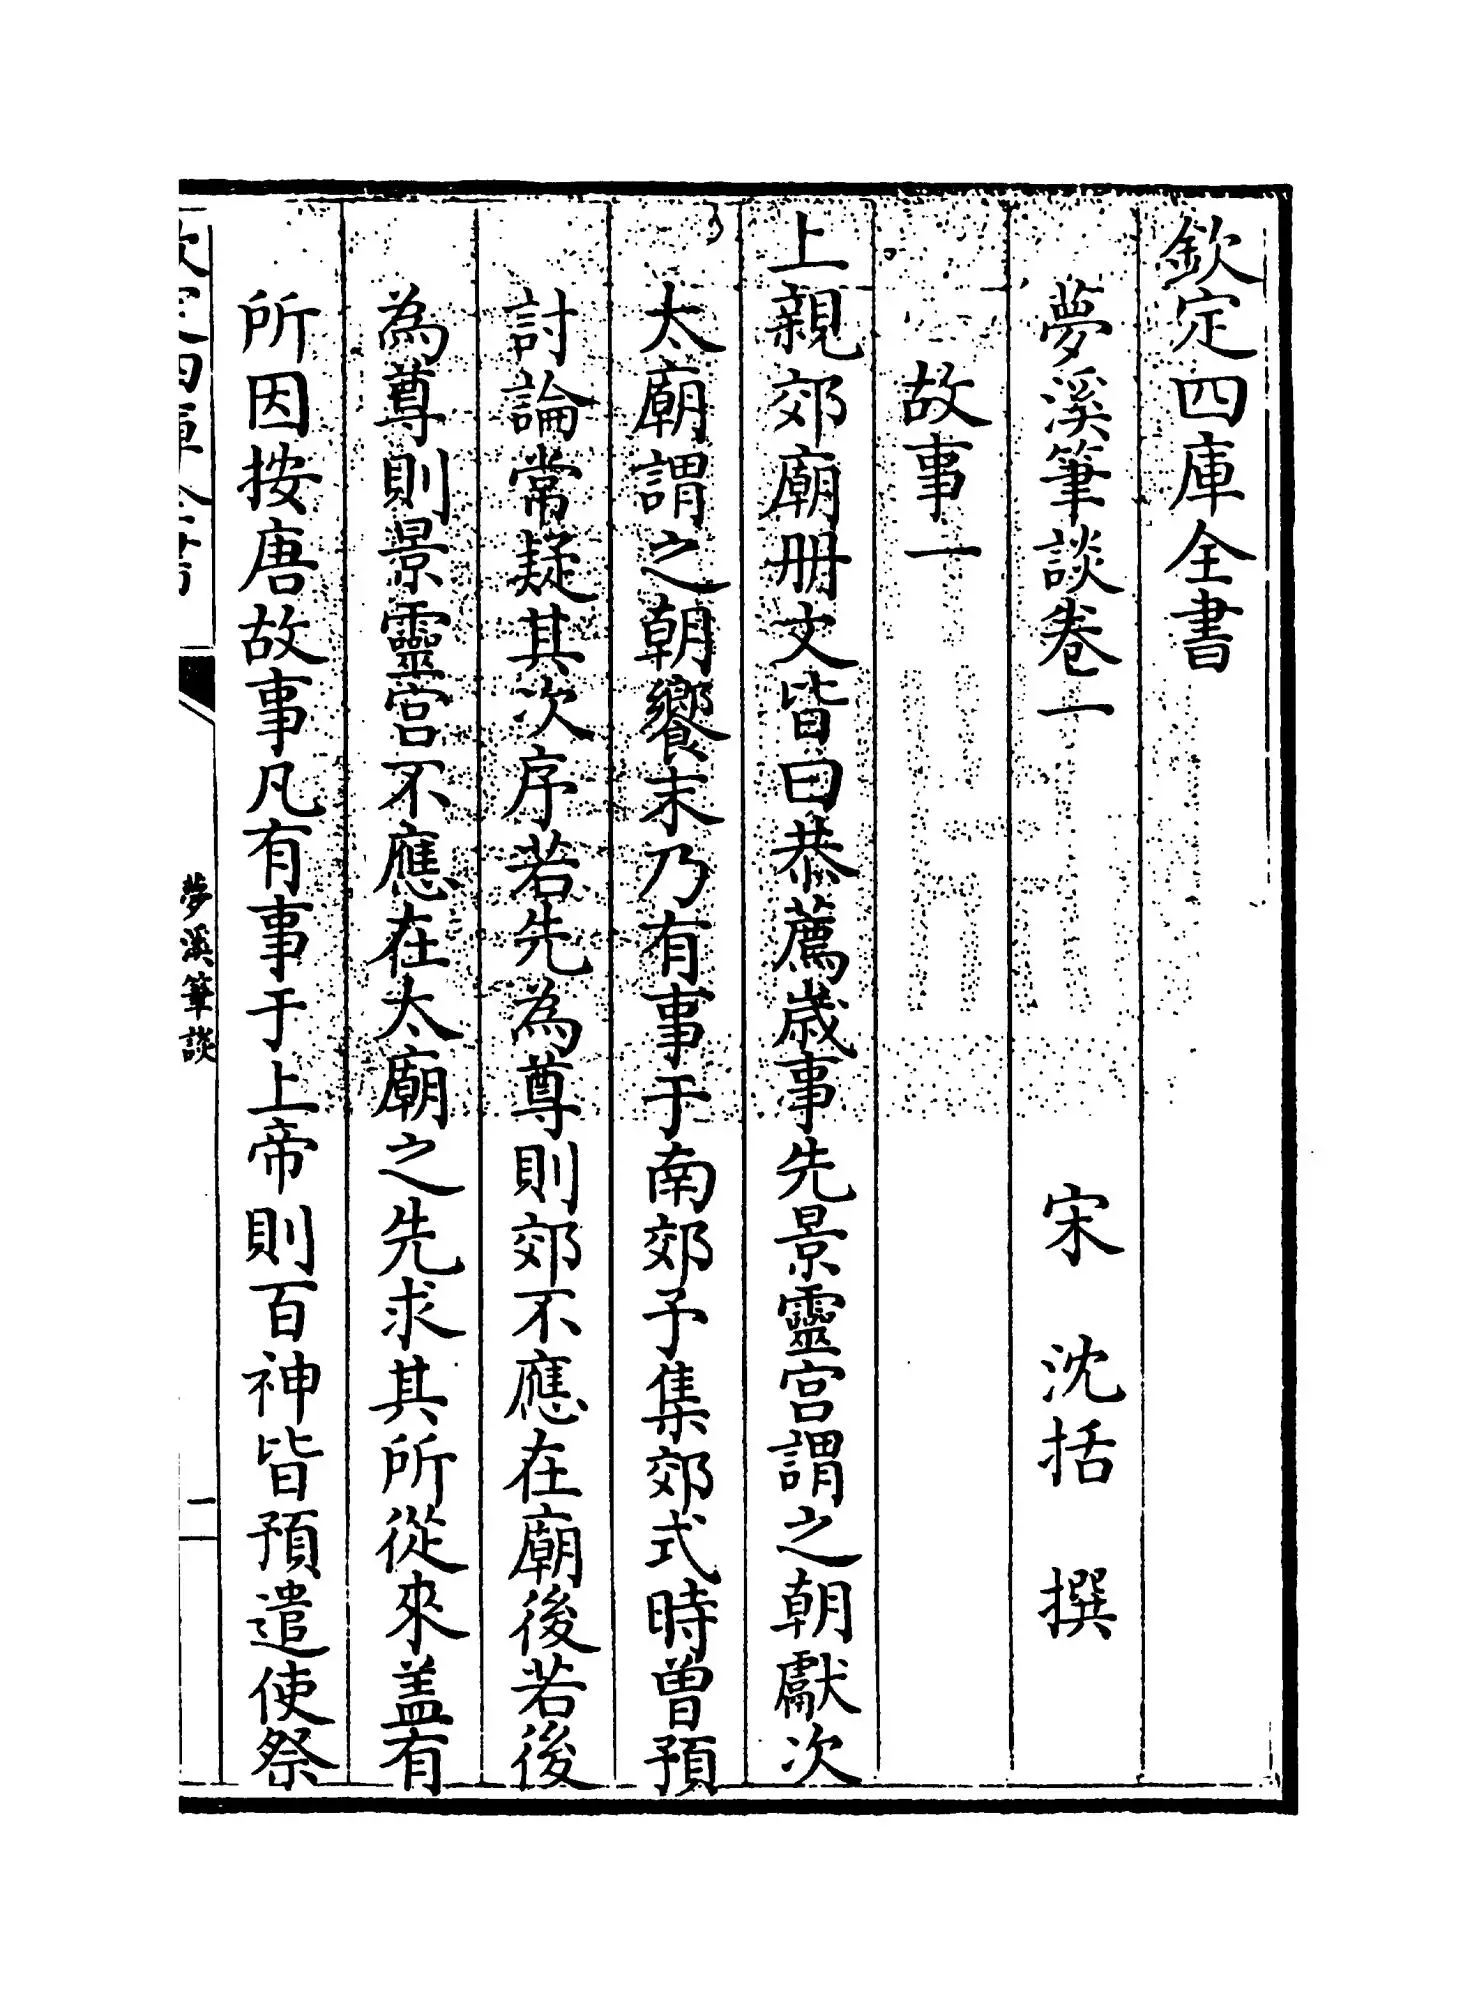 欽定四庫全書
夢溪筆談卷一　宋　沈括　撰
故事一
上親郊廟冊文皆曰恭薦歲事先景靈宫謂之朝獻次
太廟謂之朝饗末乃有事于南郊予集郊式時曾預
討論常疑其次序若先為尊則郊不應在廟後若後
為尊則景靈宫不應在太廟之先求其所從來盖有
所因按唐故事凡有事于上帝則百神皆預遣使祭
欽定四庫全書
夢溪筆談
一